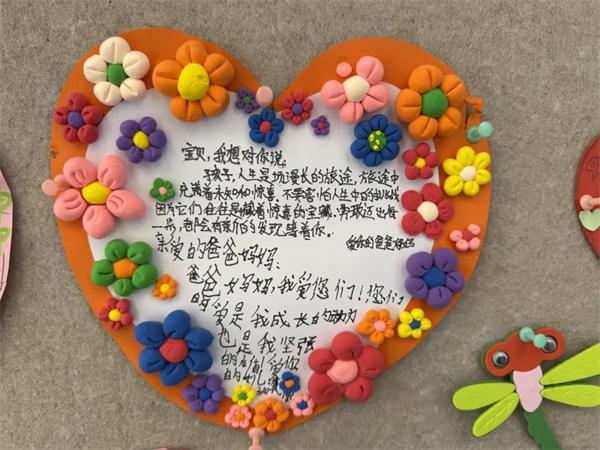 宝贝,我想对你说:
孩子,人生是场漫长的旅途,旅途中
充满着未知和惊喜,不要害怕人生中的挑战
因为它们往往是藏着惊喜的宝藏,勇敢迈出每
一步,都会有新的发现等着你。
爱你的爸爸妈妈
亲爱的爸爸妈妈:
爸爸妈妈,我爱您们!您们
的爱是我成长的动力
也是我坚强
的后盾!爱你
的